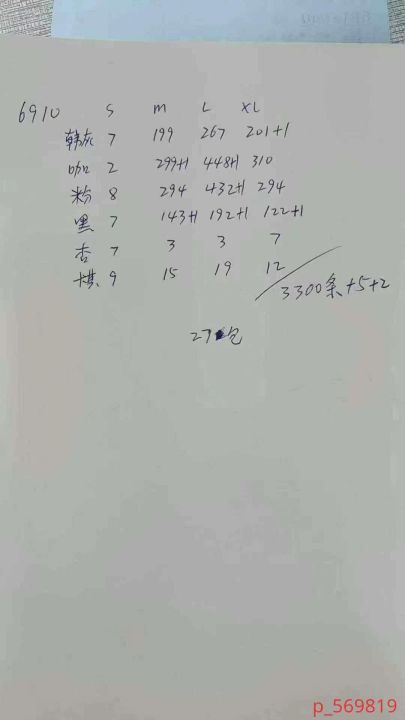 6910 S M L XL
韩灰 7 199 267 201+1
咖 2 299+1 448+1 310
粉 8 294 432+1 294
黑 7 143+1 192+1 122+1
杏 7 3 3 7
棋 9 15 19 12
3300条+5+2
27包
p_569819